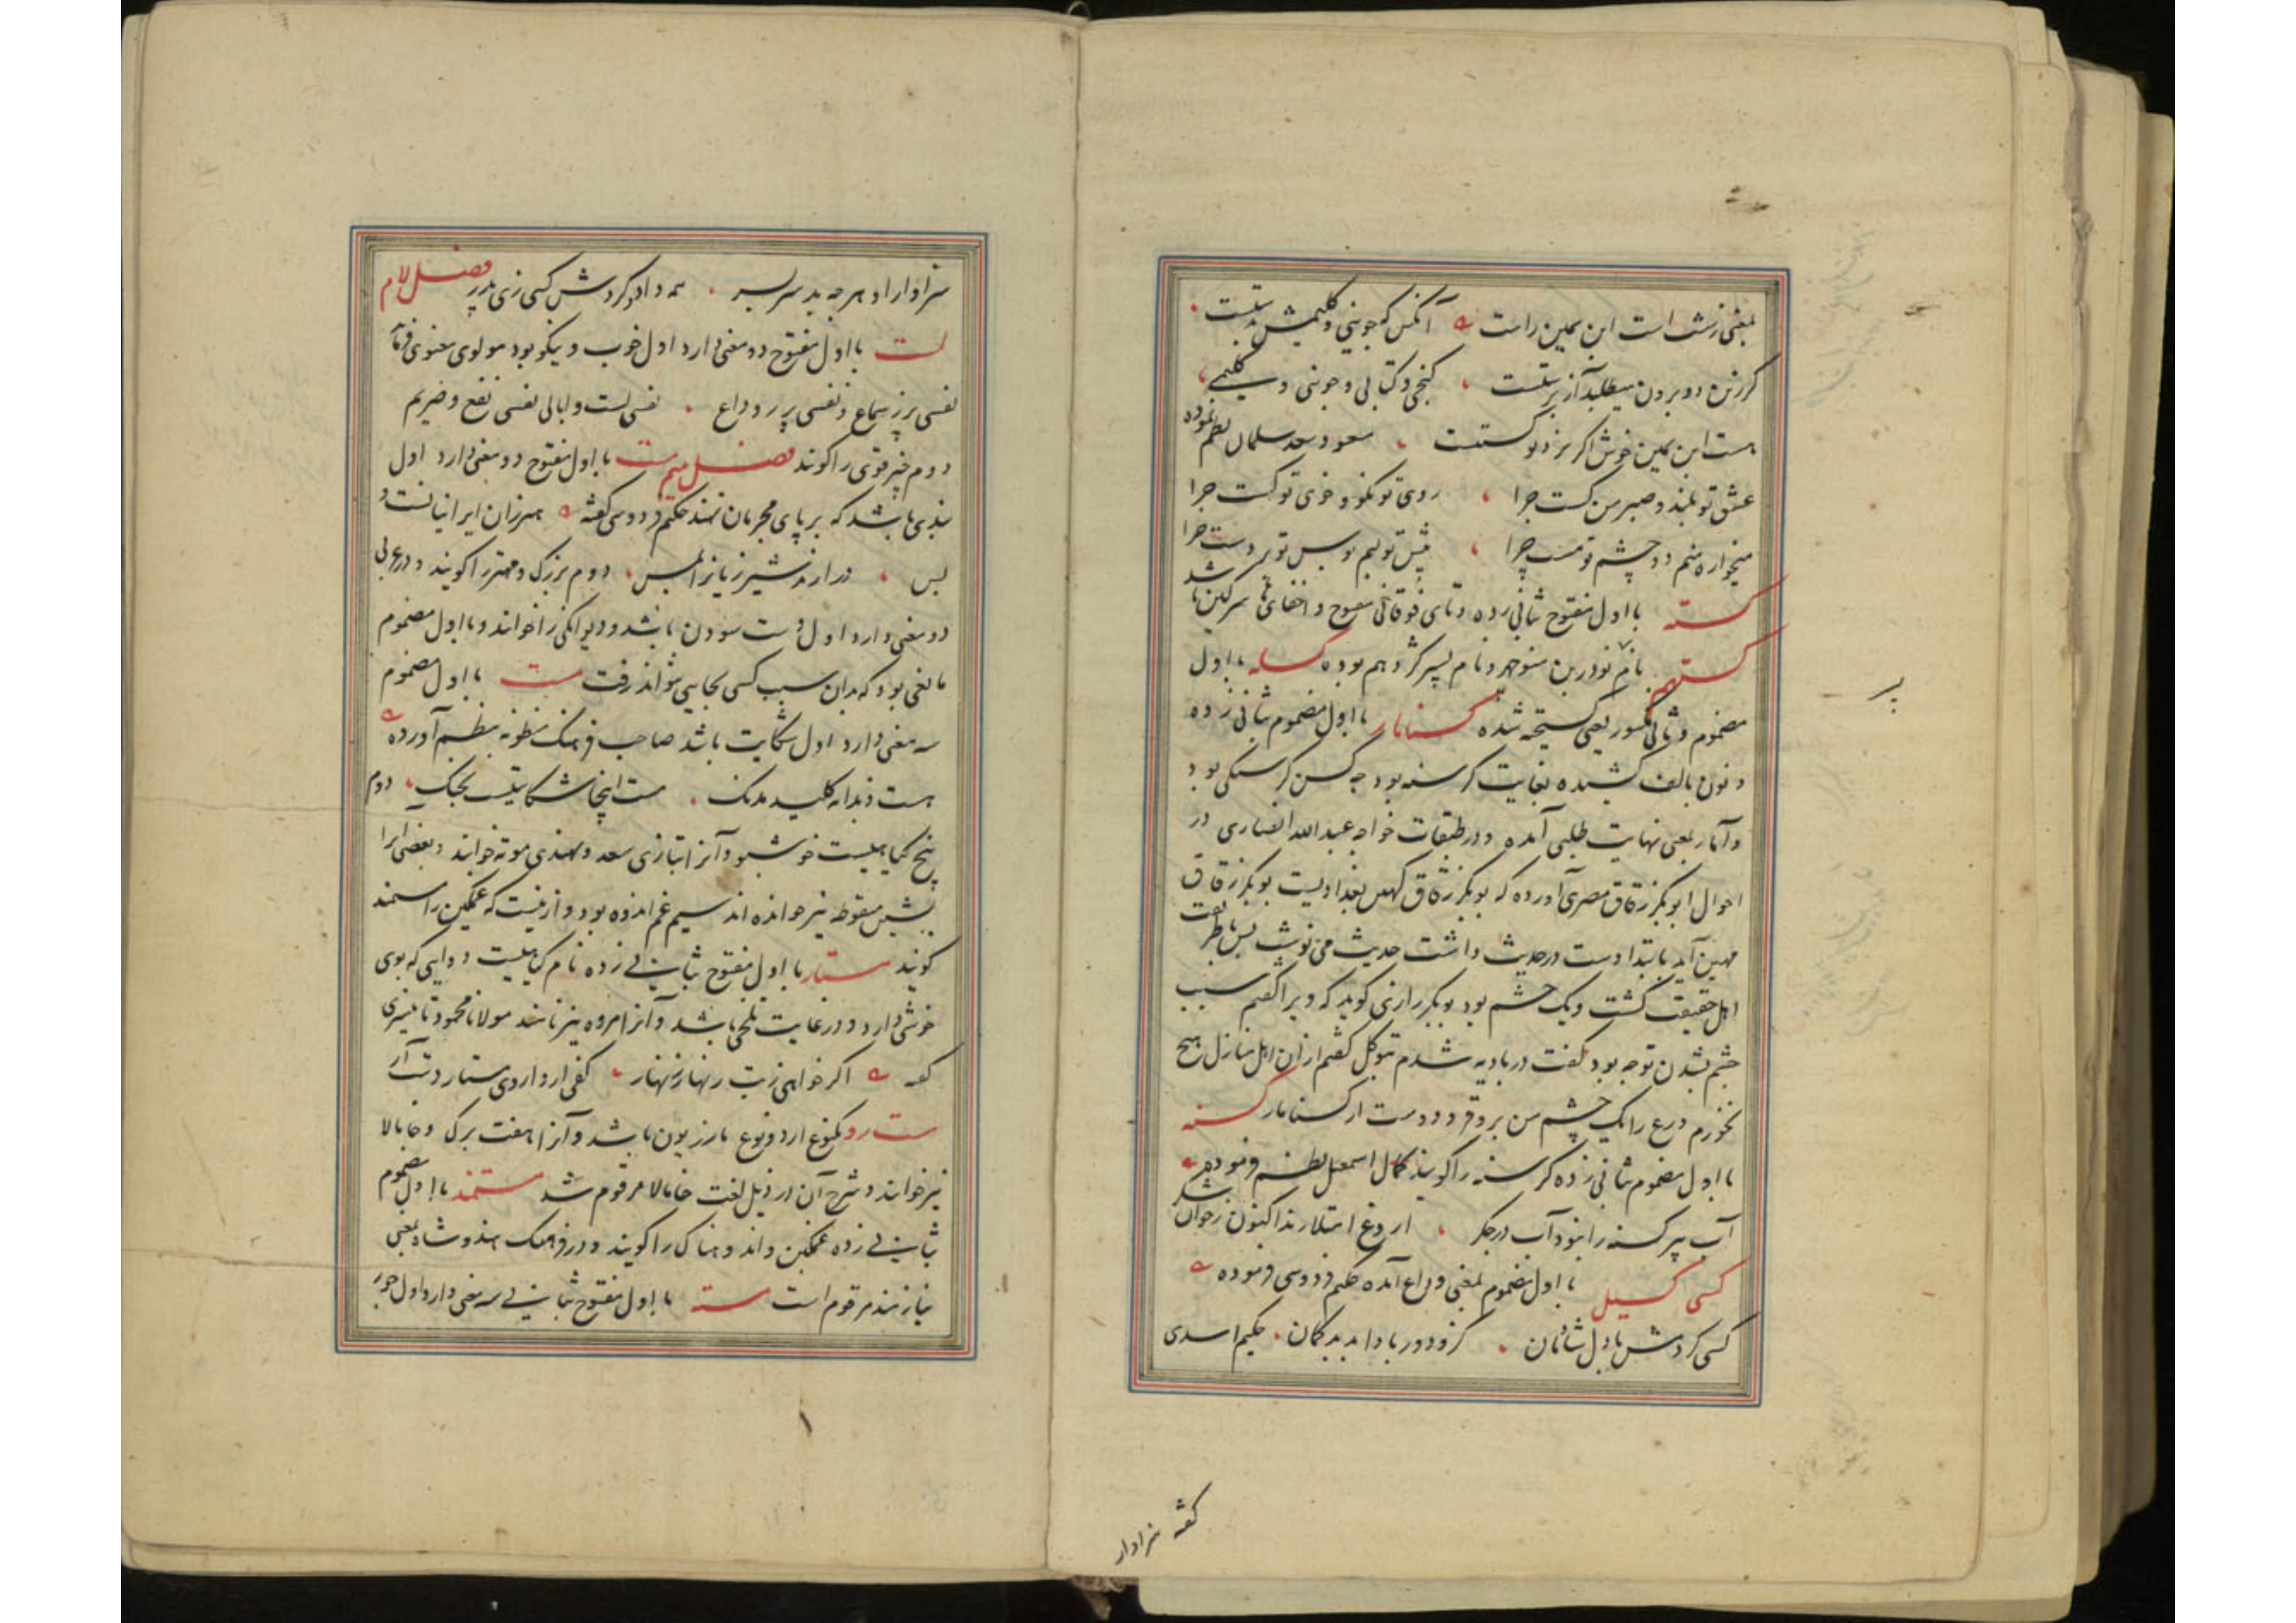 بمعنی زشت است ابن یمین راست آنکس که جوینی و کلیمیش بدست
کر زنده دو برون میطلبد آز پرتست کنجی و کتابی و جوینی و کلیمی
هست ابن یمین خوش اکر نزد تو کستست مسعود سعد سلمان نظم نموده
عشق تو بلند و صبر من کست چرا روی تو نکو و خوی تو کست چرا
میخواره منم دو چشم تو مست چرا پیش تو لبم بوس تو بر دست چرا
کسته با اول مفتوح بثانی زده و تای فوقانی مفتوح و اخفای ها سرکین باشد
کستهم نام نوذر بن منوچهر و نام پسر کژدهم بوده کسله با اول
مضموم و ثانی مکسور یعنی کسیخته شده کسنامار با اول مضموم بثانی زده
و نون بالف کشیده بغایت کرسنه بود چه کسن کرسنکی بود
و آمار بمعنی نهایت طلبی آمده و در طبقات خواجه عبدالله انصاری در
احوال ابوبکر زقاق مصری آورده که بوبکر زقاق کهین بغدادیست بوبکر زقاق
مهین آید بابتدا دست در حدیث داشت حدیث می نوشت پس بطریقت
اهل حقیقت کشت و یک چشم بود بوبکر رازی کوید که ویرا کفتم سبب
چشم بشدن تو چه بود کفت در بادیه شدم بتوکل کفتم از آن اهل منازل هیچ
نخورم ورع را یک چشم من برو فرو دوست از کسنامار کسنه
با اول مضموم بثانی زده کرسنه را کویند کمال اسمعیل نظم فرموده
آب پیر کسنه را نبود آب در جکر از وغ امتلا زند اکنون ز خوان شکر
کسی کسیل با اول مضموم بمعنی وداع آمده حکیم فردوسی فرموده
کسی کردمش با دل شادمان کزو دور بادا بد بدکمان حکیم اسدی
کفته سزاوار
سزاوار او هر چه بد سر بسر همه داد و کردش کسی زی پدر فصل لام
لست با اول مفتوح دو معنی دارد اول خوب و نیکو بود مولوی معنوی فرماید
نفسی پرز سماع و نفسی پر ز وداع نفسی لست و ابالی نفسی نفع و ضریم
دوم چیز قوی را کویند فصل میم مست با اول مفتوح دو معنی دارد اول
بندی باشد که بر پای مجرمان نهند حکیم فردوسی کفته
بس دوم بزرک و مهتر را کویند و در عربی
دو معنی دارد اول دست سودن باشد و دیوانکی را خوانند و با اول مضموم
مانعی بود که بدان سبب کسی بجایی نتواند رفت مست با اول مضموم
سه معنی دارد اول شکایت باشد صاحب فرهنک منظومه بنظم آورده
هست دندانه کلید مدنک مست اینجا شکایتست بجنک دوم
بیخ کیاهیست خوشبو و آنرا بتازی سعد و بهندی موته خوانند و بعضی آنرا
بشین منقوطه نیز خوانده اند سیم غم اندوه بود و ازینست که غمکین را مستمند
کویند مستار با اول مفتوح بثانی زده نام کیاهیست دوایی که بوی
خوشی دارد و در غایت تلخی باشد و آنرا مروه نیز نامند مولانا محمود
کفته
مسترو یکنوع از دو نوع مازریون باشد و آنرا هفت برک و خامالا
نیز خوانند و شرح آن در ذیل لغت خامالا مرقوم شد مستمند با اول مضموم
بثانی زده غمکین و اندوهناک را کویند و در فرهنک هندوشاه بمعنی
نیازمند مرقوم است مسته با اول مفتوح بثانی زده سه معنی دارد اول جور